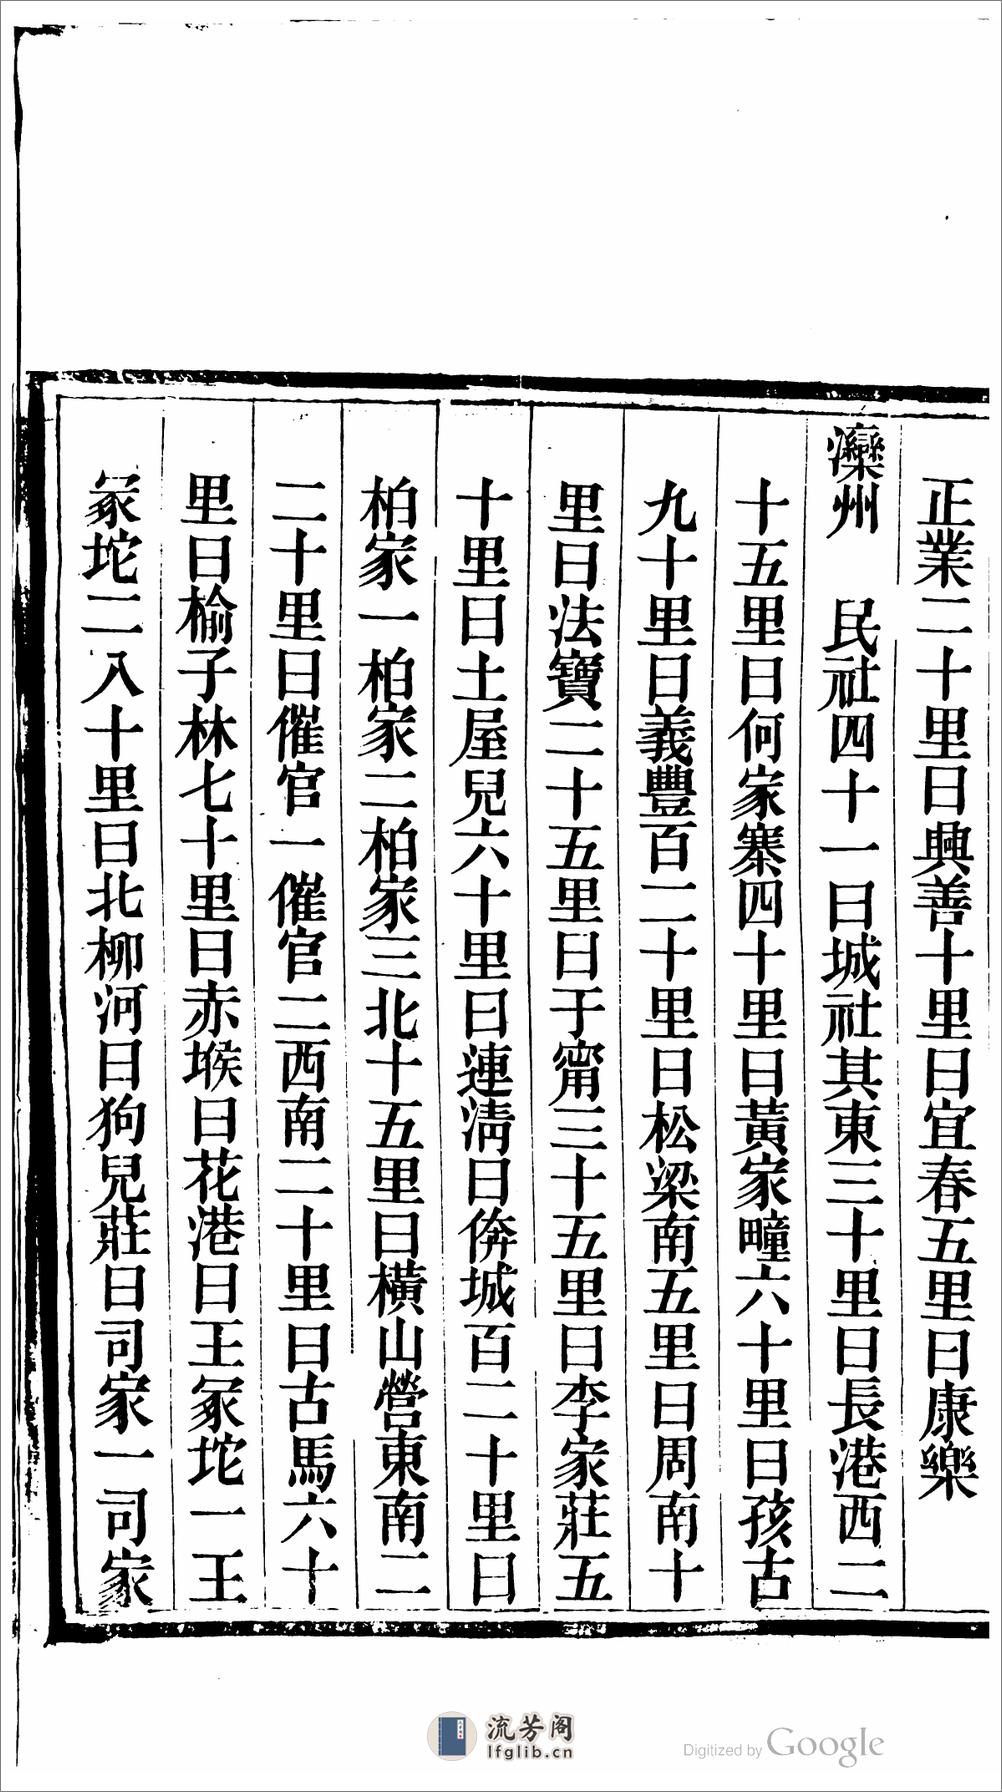 正業二十里曰興善十里曰宜春五里曰康樂
灤州　民社四十一曰城社其東三十里曰長港西二
十五里曰何家寨四十里曰黃家疃六十里曰孩古
九十里曰義豐百二十里曰松梁南五里曰周南十
里曰法寶二十五里曰于甯三十五里曰李家莊五
十里曰土屋兒六十里曰連淸曰倴城百二十里曰
柏家一柏家二柏家三北十五里曰橫山營東南二
二十里曰催官一催官二西南二十里曰古馬六十
里曰榆子林七十里曰赤堠曰花港曰王冢坨一王
冢坨二八十里曰北柳河曰狗兒莊曰司家一司家
流芳阁
lfglib.cn
Digitized by Google